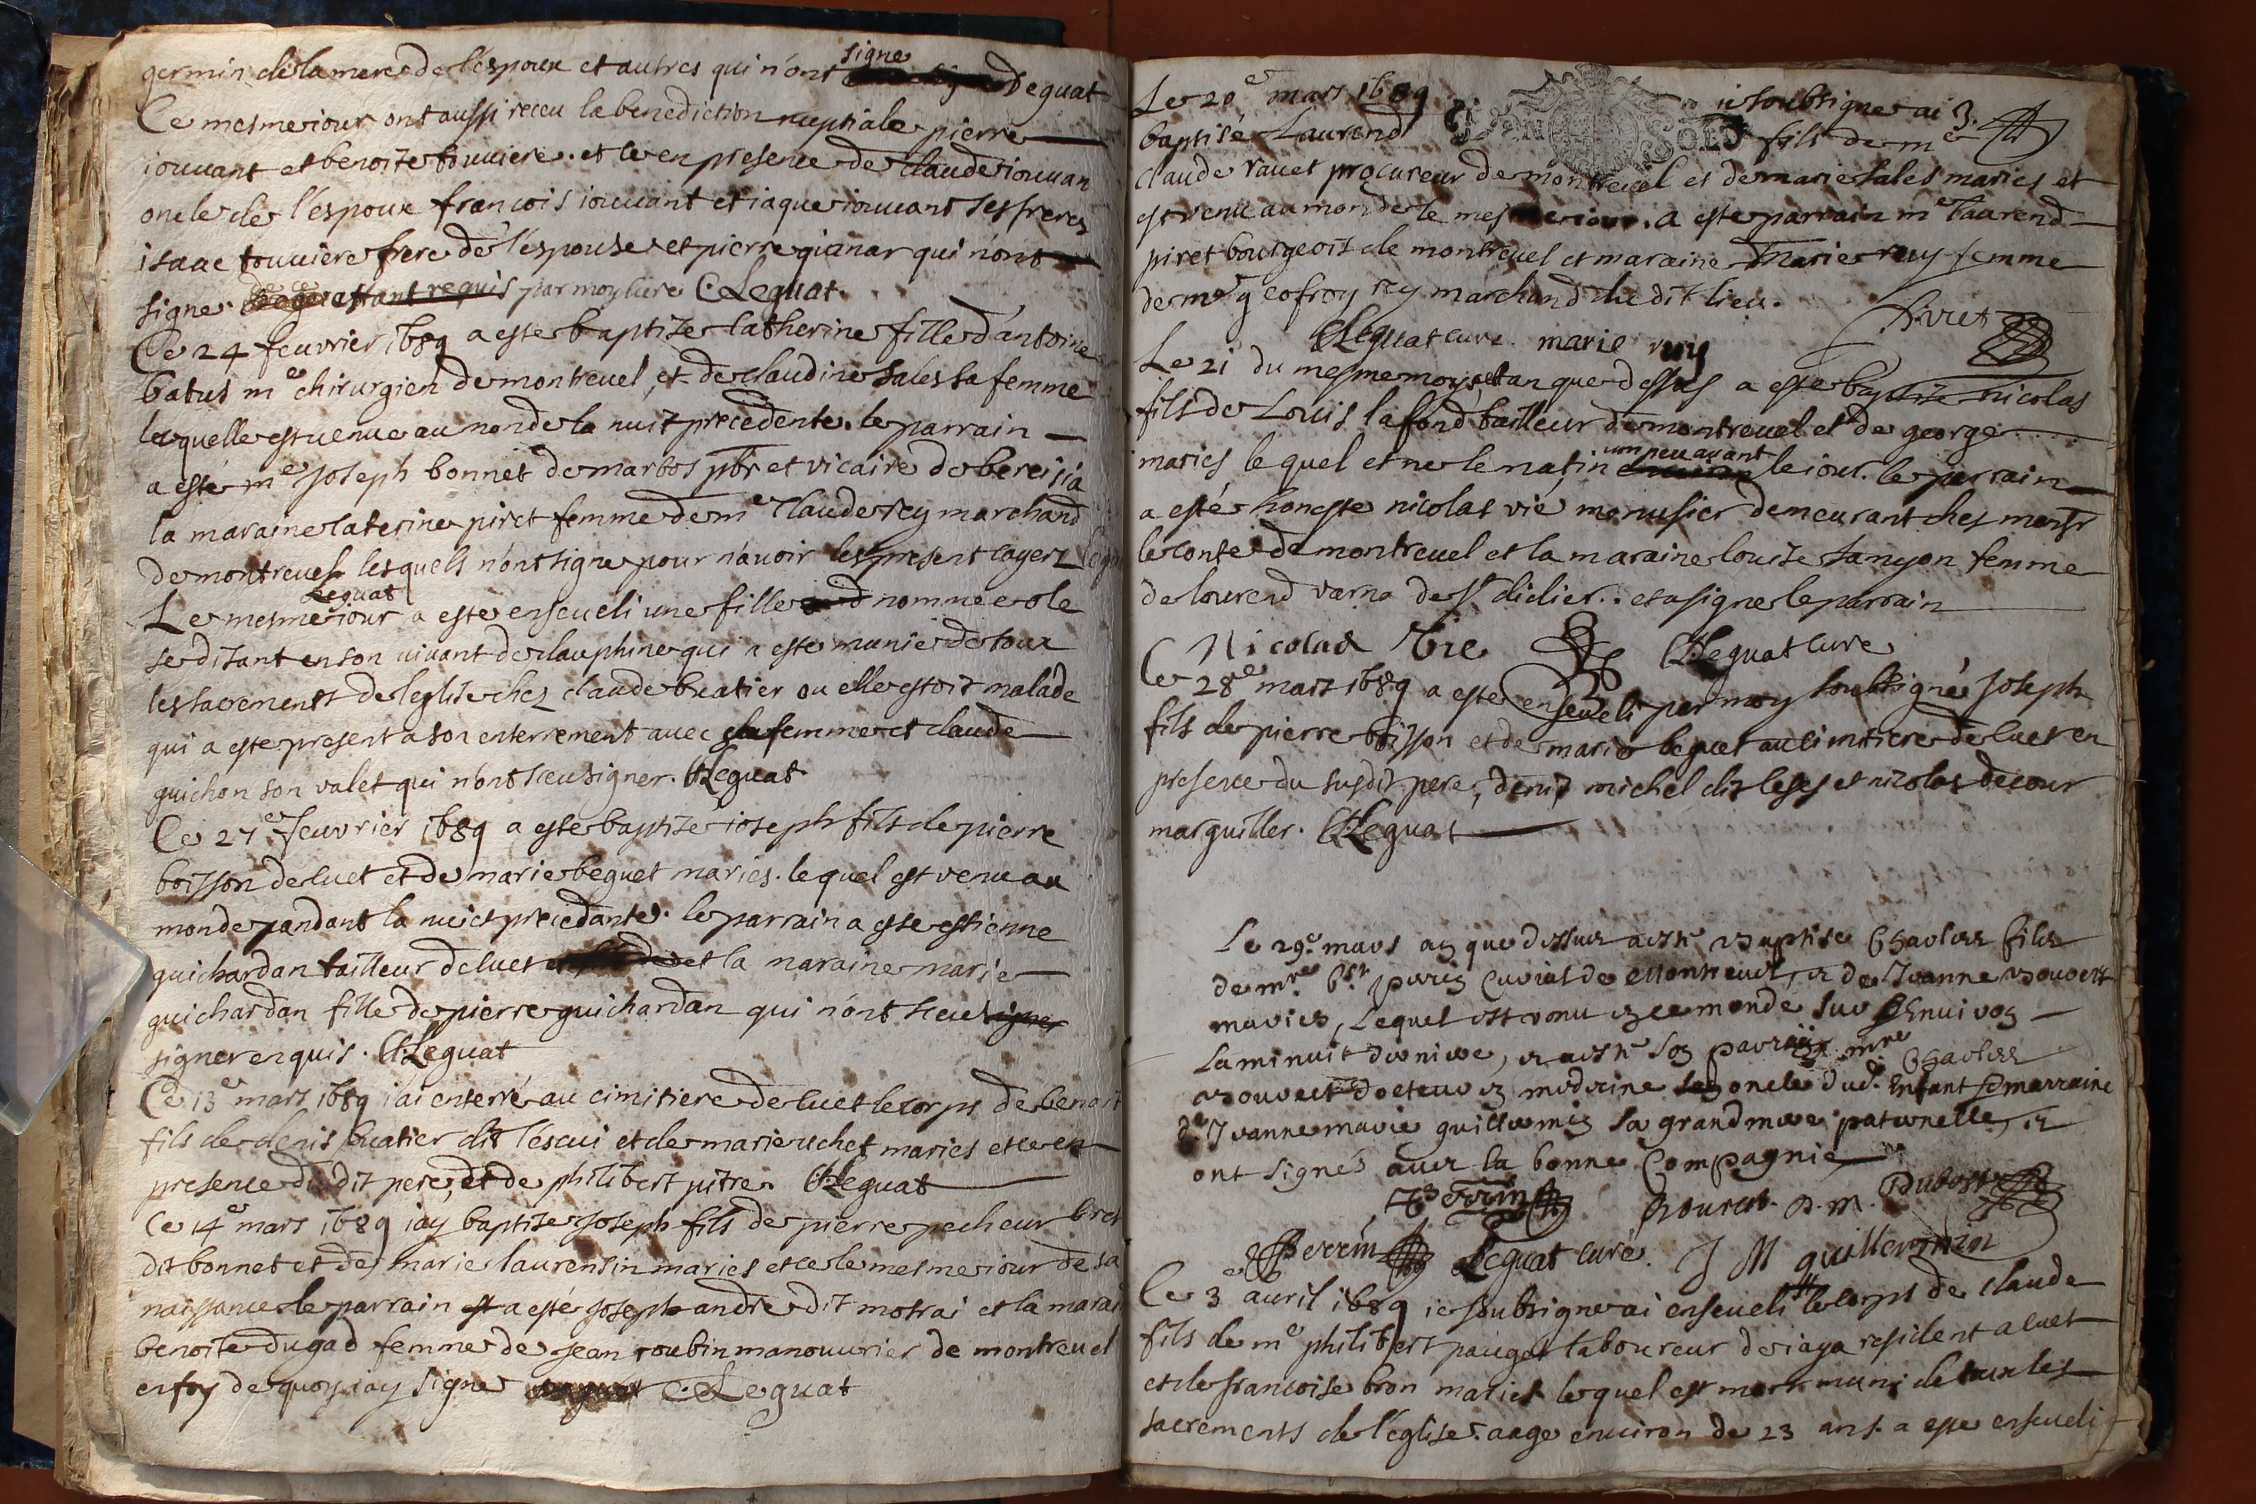 germin de la mere de l'espoux et autres qui n'ont signe Leguat
Ce mesme iour ont aussi receu la benediction nuptiale pierre
iouuant et benoite touuiere. et ce en presence de claude iouuan
oncle de l'espoux francois iouuant et iaque iouuant ses freres
isaac touuiere frere de l'espouse et pierre qui n'ont
signe estant requis par moy cure C. Leguat.
Ce 24 feuurier 1689 a este baptize Catherine fille d'antoine
batus me chirurgien de montreuel et de claudine sales sa femme
lequelle est uenue au monde la nuit precedente. le parrain
a esté me Joseph bonnet de marbos pbr et vicaire de bereisia
la maraine Caterine piret femme de me Claude rey marchand
de montreuel lesquels n'ont signe pour n'auoir les present cayerz
Leguat
Le mesme iour a este enseueli une fille nommee
se disant en son uiuant de dauphine qui a este munie de toux
les sacements de l'eglise chez claude buatier ou elle estoit malade
qui a este present a son enterrement auec sa femme et claude
guichon son valet qui n'ont sceu signer. C. Leguat
Ce 27e feuurier 1689 a este baptize ioseph fils de pierre
boisson de cuet et de marie beguet maries. lequel est venu au
monde pandant la nuict precedante. le parrain a este estienne
guichardan tailleur de cuet et la maraine marie
guichardan fille de pierre guichardan qui n'ont sceu signer
signer enquis. C. Leguat
Ce 13e mars 1689 iai enterré au cimitiere de cuet le corps de benoit
fils de denis buatier dit l'escui et de marie uchet maries et ce en
presence du dit pere, et de philibert pitre. C. Leguat
Ce 14e mars 1689 iay baptize Joseph fils de pierre pecheur
dit bonnet et de marie laurensin maries et ce le mesme iour de sa
naissance le parrain a esté Joseph andre dit motrai et la marai
benoite dugad femme de Jean roubin manouurier de montreuel
en foy de quoy iay signe C. Leguat
Le 20e mars 1689 ie soubsigne ai 3.
baptisé Laurend fils de me
Claude rauet procureur de montreuel et de marie sales maries et
est venu au monde le mesme iour. a este parrain me laurend
piret bourgeois de montreuel et maraine marie rey femme
de me geofroy rey marchand dudit lieu.
C. Leguat cure. marie rey Piret
Le 21 du mesme moys et an que dessus a este baptizé nicolas
fils de Louis lafond bailleur de montreuel et de george
maries, lequel et ne le matin un peu auant le iour. le parrain
a esté honeste nicolas vié menusier demeurant ches monsr
le conte de montreuel et la maraine louise Janyon femme
de lourend varna de st didier. et a signe le parrain
Nicolas Vie C. Leguat cure
Ce 28e mars 1689 a este enseueli par moy soubsigné Joseph
fils de pierre boisson et de marie beguet au cimitiere de cuet en
presence du susdit pere, denis michel dit leses et nicolas decour
marguiller. C. Leguat
Le 29e mars an que dessus a esté baptisé Charles fils
de mre perrin curial de Montreuel, et de Jeanne bouuert
maries, lequel est venu en ce monde sur enuiron
la minuit derniere, et a esté son parrain mre Charles
bouuert docteur en medecine son oncle dud. Enfant et marraine
de Jeanne marie guillermin sa grand mere paternelle, et
ont signés auec la bonne Compagnie
Perrin Bouuert. D. M. Dubost
Perrin Leguat curé. J M guillermin
Ce 3e auril 1689 ie soubsigne ai enseueli le corps de claude
fils de me philibert pauget laboureur de iaya resident a cuet
et de francoise bron maries lequel est mort muni de toux les
sacrements de l'église. aage enuiron de 23 ans. a este enseueli